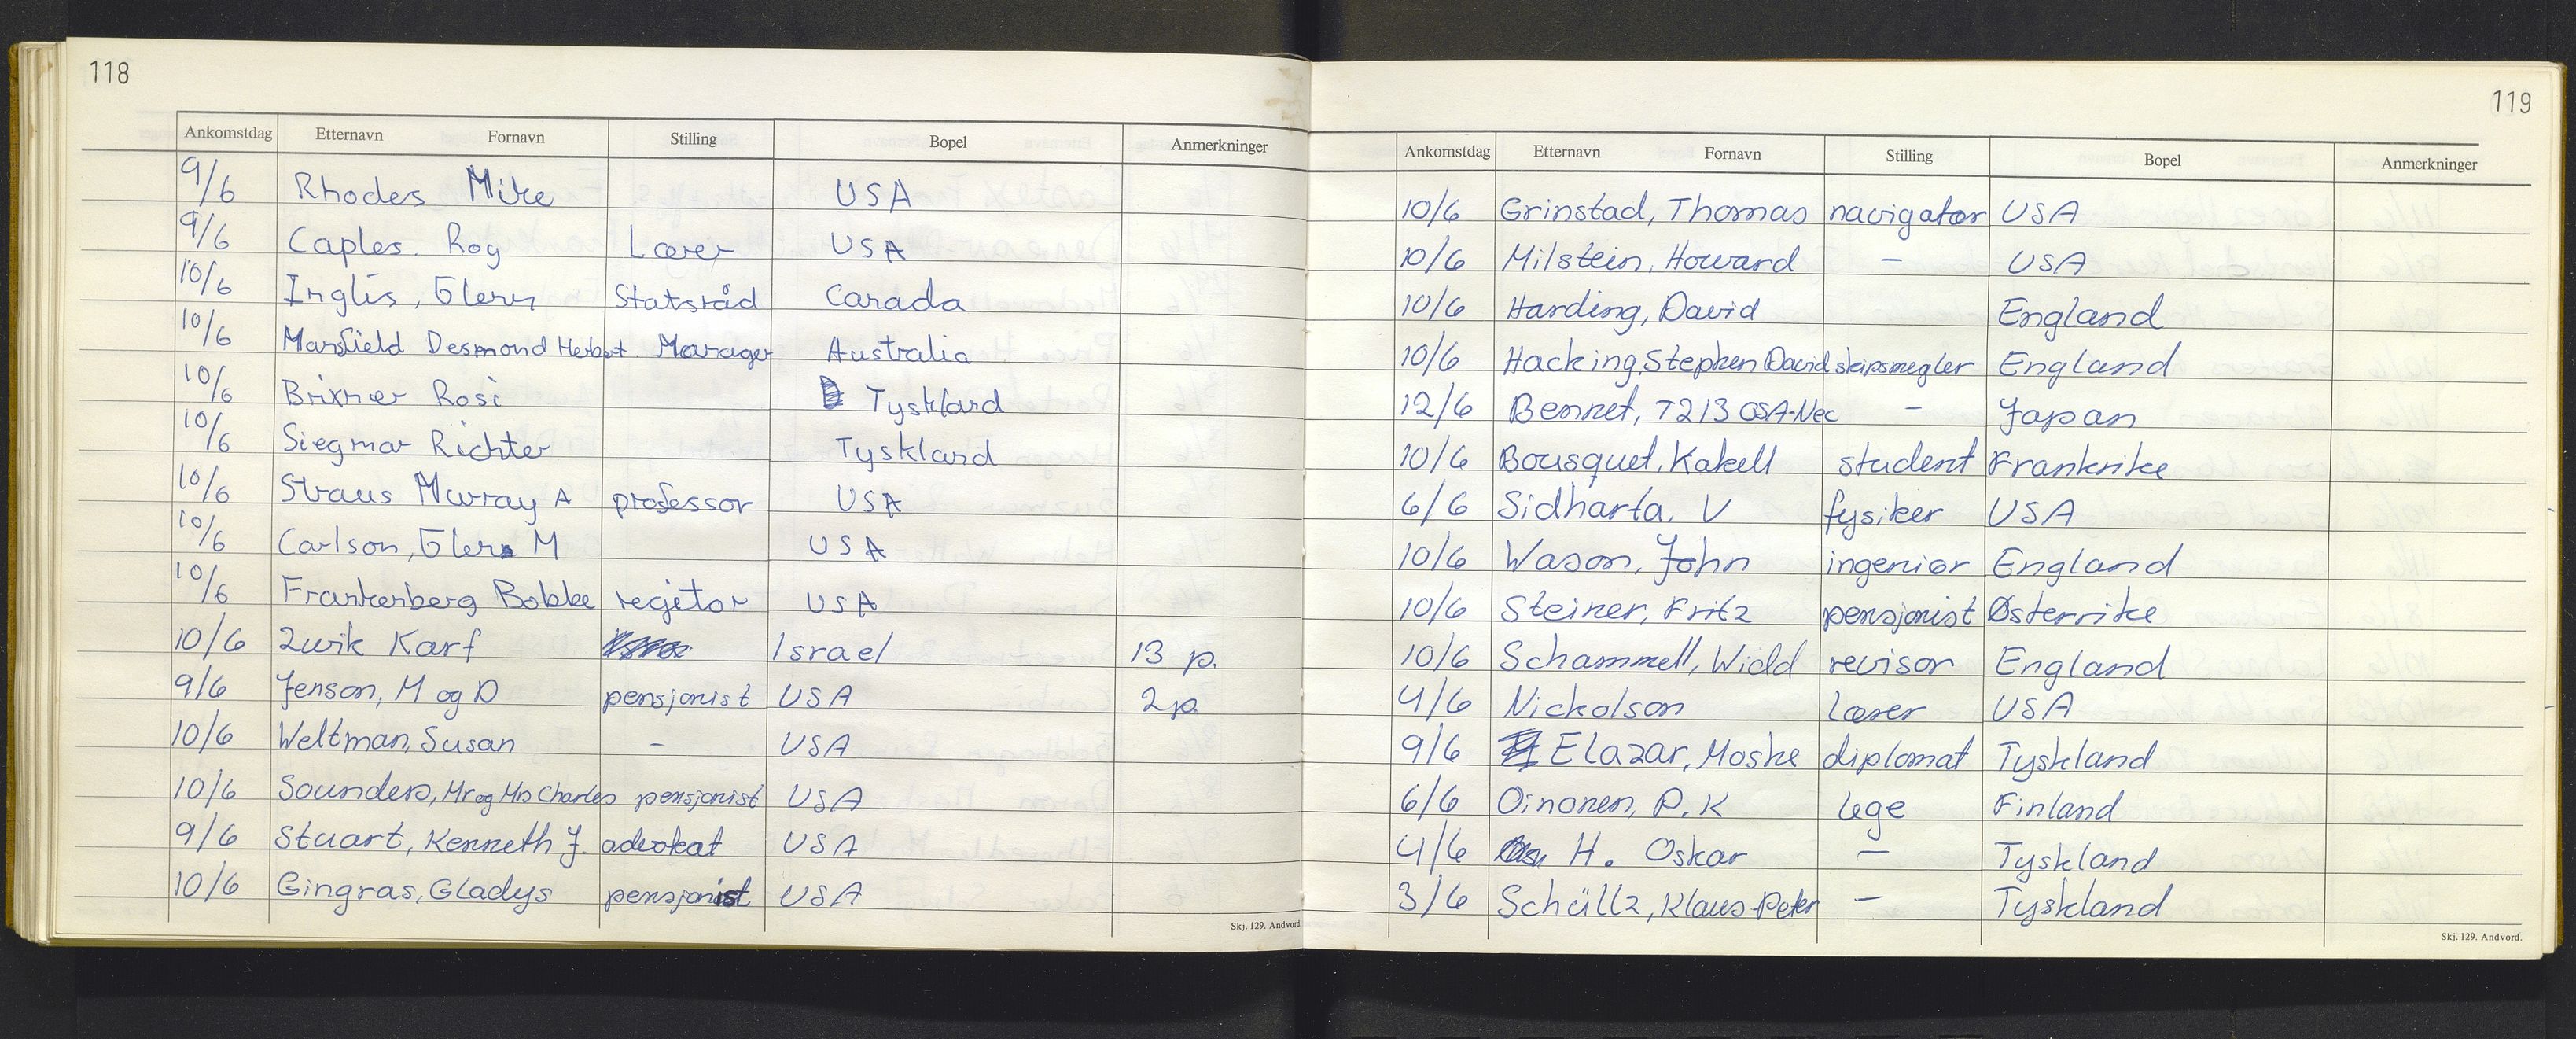 118
Ankomstdag Etternavn Fornavn Stilling Bopel Anmerkninger
9/6 Rhodes Mike USA
9/6 Caples. Roy Lærer USA
10/6 Inglis, Glenn Statsråd Canada
10/6 Mansfield Desmond Herbert. Manager Australia
10/6 Brixner Rosi Tyskland
10/6 Siegmar Richter Tyskland
10/6 Straus Murray A professor USA
10/6 Carlson, Glenn M USA
10/6 Frankenberg Bobbee regjetor USA
10/6 Zwik Karf Israel 13 p.
9/6 Jenson, M og D pensjonist USA 2 p.
10/6 Weltman, Susan – USA
10/6 Sounders, Mr og Mrs Charles pensjonist USA
9/6 Stuart, Kenneth J. advokat USA
10/6 Gingras, Gladys pensjonist USA
Skj. 129. Andvord.
119
Ankomstdag Etternavn Fornavn Stilling Bopel Anmerkninger
10/6 Grinstad, Thomas navigatør USA
10/6 Milstein, Howard – USA
10/6 Harding, David England
10/6 Hacking, Stephen David skipsmegler England
12/6 Bennet, T213 OSA-Nec – Japan
10/6 Bousquet, Katell student Frankrike
6/6 Sidharta, V fysiker USA
10/6 Wason, John ingeniør England
10/6 Steiner, Fritz pensjonist Østerrike
10/6 Schammell, Widd revisor England
4/6 Nickolson Lærer USA
9/6 Elazar, Moshe diplomat Tyskland
6/6 Oinonen, P. K lege Finland
4/6 H. Oskar – Tyskland
3/6 Schüllz, Klaus-Peter – Tyskland
Skj. 129. Andvord.